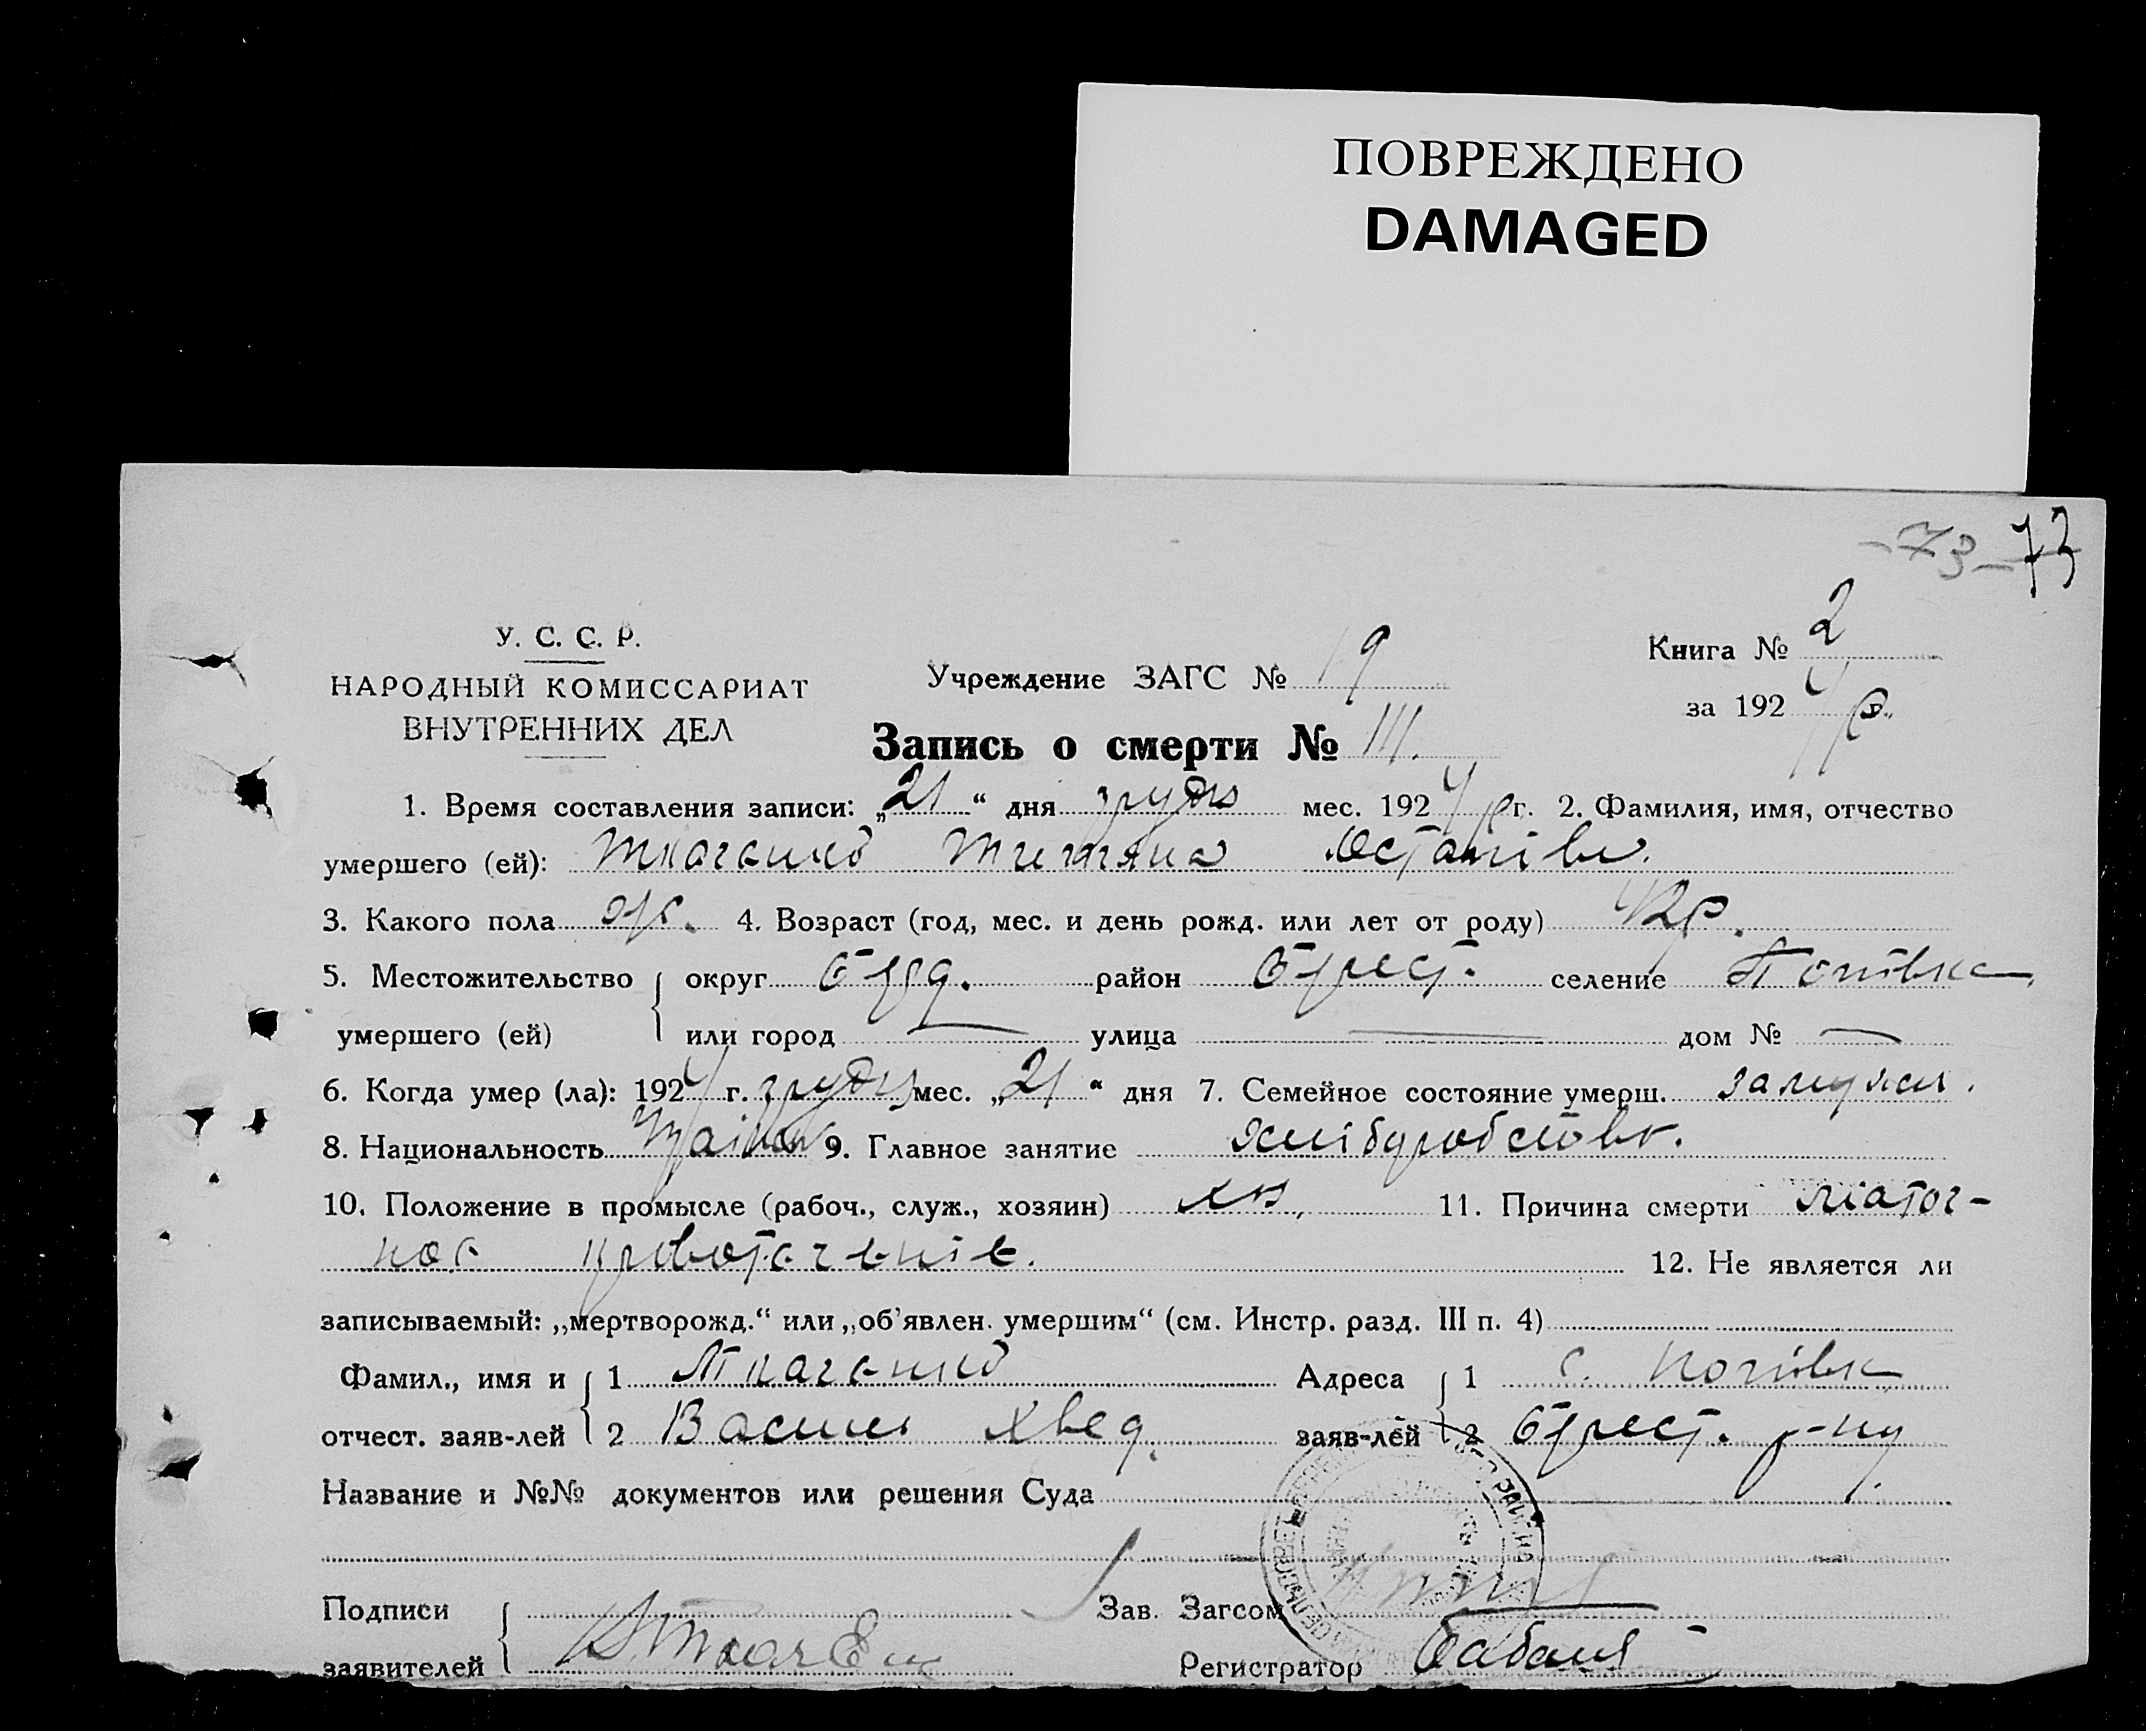 ПОВРЕЖДЕНО
DAMAGED
-73- 73
У. С. С. Р.
НАРОДНЫЙ КОМИССАРИАТ
ВНУТРЕННИХ ДЕЛ
Учреждение ЗАГС № 19
Книга № 2
за 1924 р.
Запись о смерти № 111.
1. Время составления записи: „21“ дня грудн мес. 1924 р г. 2. Фамилия, имя, отчество
умершего (ей): Ткаченко Титяна Остапівн.
3. Какого пола ж. 4. Возраст (год, мес. и день рожд. или лет от роду) 42 р.
5. Местожительство округ район селение Попівка
умершего (ей) или город — улица — дом № —
6. Когда умер (ла): 1924 г. грудн мес. „21“ дня 7. Семейное состояние умерш. замужн.
8. Национальность 9. Главное занятие хліборобство.
10. Положение в промысле (рабоч., служ., хозяин) хоз. 11. Причина смерти маточ-
ное кровотеченіе.
12. Не является ли
записываемый: „мертворожд.“ или „об’явлен. умершим“ (см. Инстр. разд. III п. 4)
Фамил., имя и 1 Ткаченко Адреса 1 с. Попівка
отчест. заяв-лей 2 Васил Хвед. заяв-лей 2 р-ну
Название и №№ документов или решения Суда
Подписи
Зав. Загсом
заявителей
Регистратор